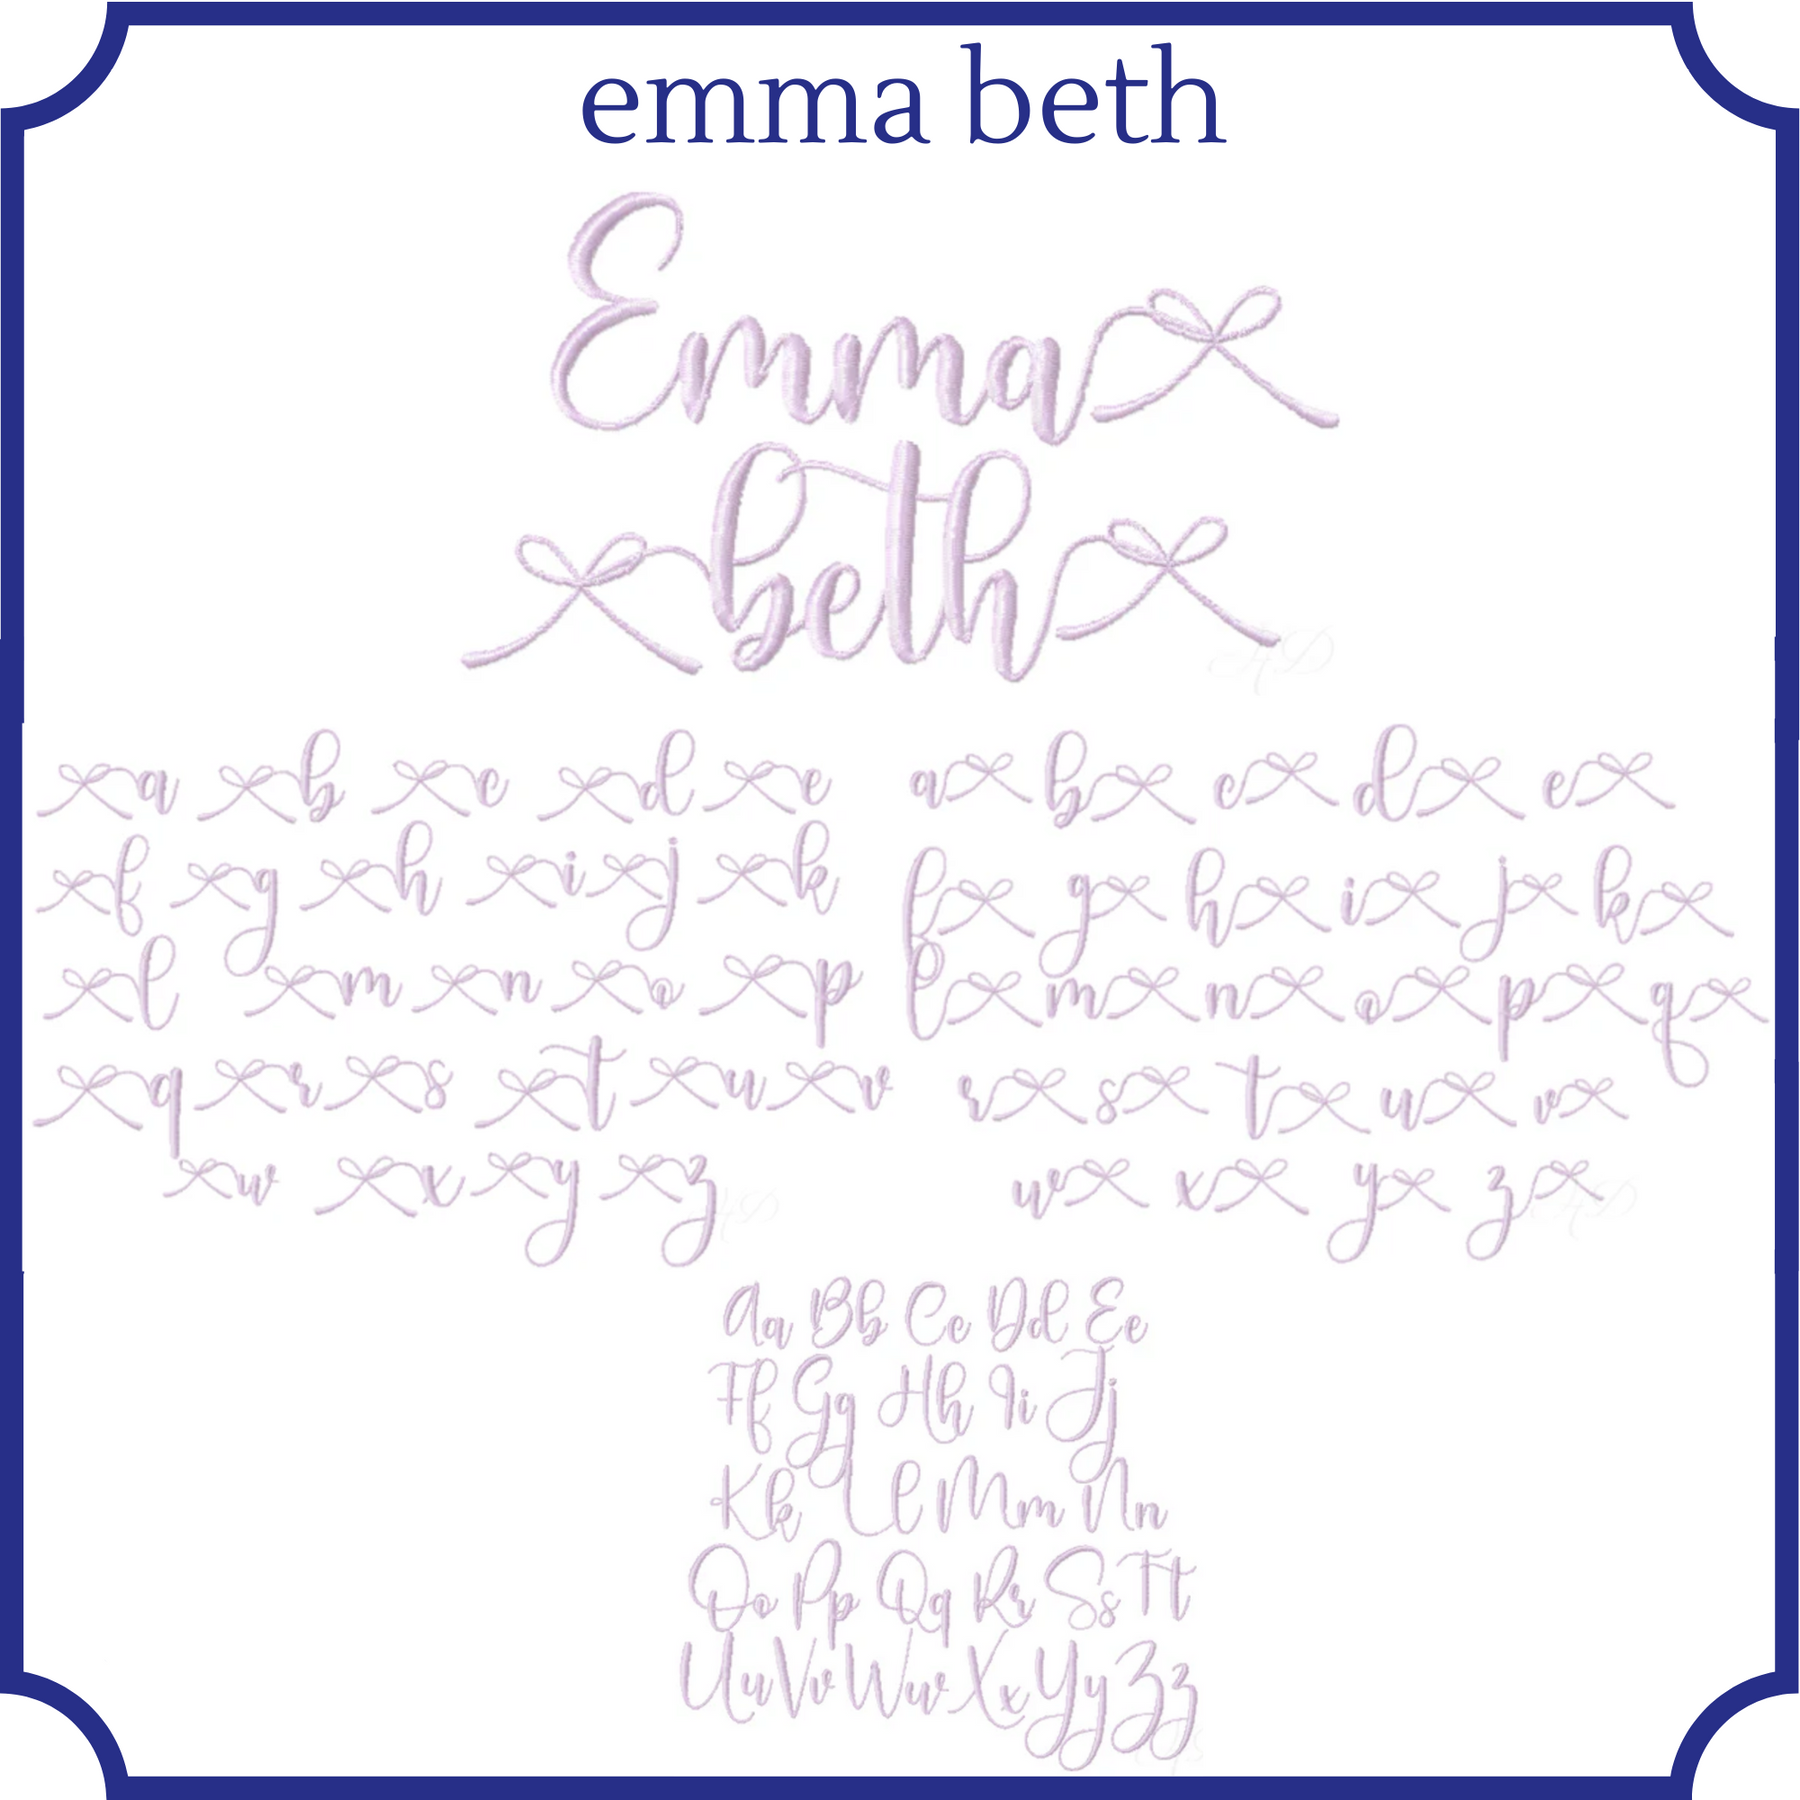 emma beth
Emma
beth
a b c d e
f g h i j k
l m n o p
q r s t u v
w x y z
a b c d e
f g h i j k
l m n o p q
r s t u v
w x y z
Aa Bb Cc Dd Ee
Ff Gg Hh Ii Jj
Kk Ll Mm Nn
Oo Pp Qq Rr Ss Tt
Uu Vv Ww Xx Yy Zz